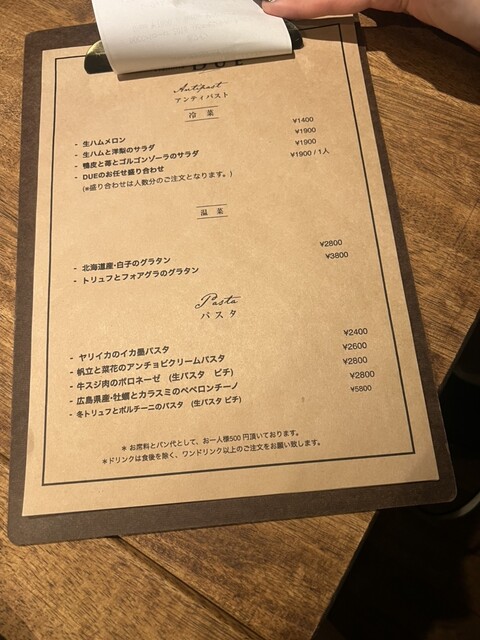 DUE
Antipast
アンティパスト
冷 菜
- 生ハムメロン ¥1400
- 生ハムと洋梨のサラダ ¥1900
- 鴨皮と苺とゴルゴンゾーラのサラダ ¥1900
- DUEのお任せ盛り合わせ ¥1900 / 1人
(※盛り合わせは人数分のご注文となります。)
温 菜
- 北海道産・白子のグラタン ¥2800
- トリュフとフォアグラのグラタン ¥3800
Pasta
パスタ
- ヤリイカのイカ墨パスタ ¥2400
- 帆立と菜花のアンチョビクリームパスタ ¥2600
- 牛スジ肉のボロネーゼ (生パスタ ピチ) ¥2800
- 広島県産・牡蠣とカラスミのペペロンチーノ ¥2800
- 冬トリュフとポルチーニのパスタ (生パスタ ピチ) ¥5800
※ お席料とパン代として、お一人様500 円頂いております。
※ドリンクは食後を除く、ワンドリンク以上のご注文をお願い致します。